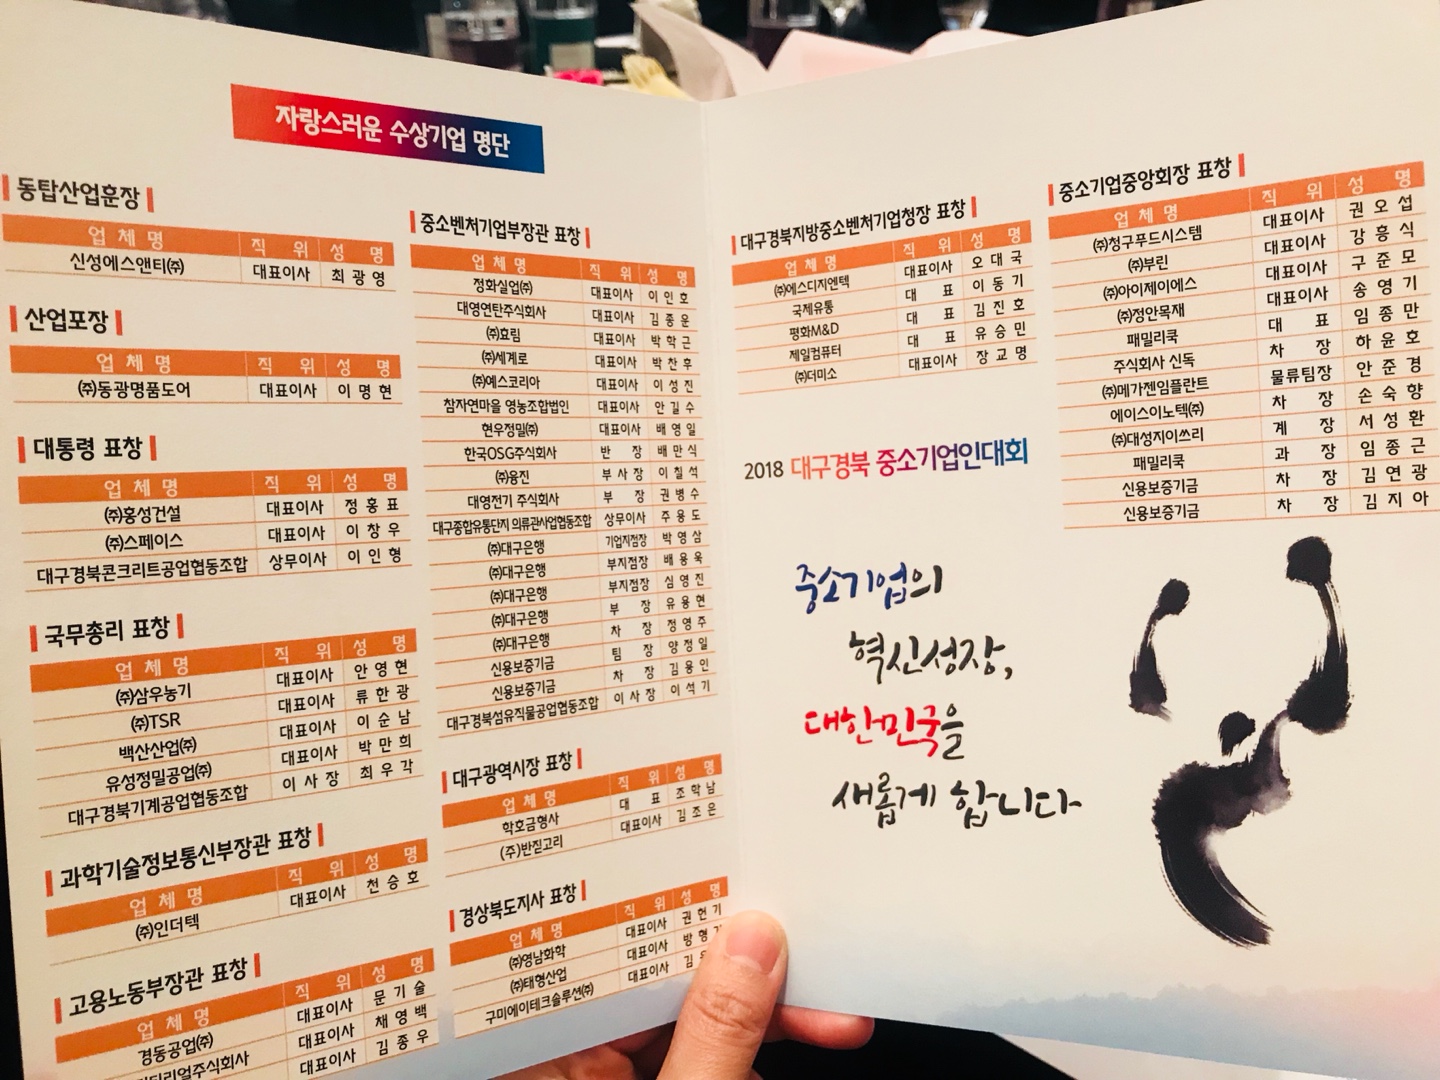 자랑스러운 수상기업 명단
동탑산업훈장
업 체 명 직 위 성 명
신성에스앤티㈜ 대표이사 최 광 영
산업포장
업 체 명 직 위 성 명
㈜동광명품도어 대표이사 이 명 현
대통령 표창
업 체 명 직 위 성 명
㈜홍성건설 대표이사 정 홍 표
㈜스페이스 대표이사 이 창 우
대구경북콘크리트공업협동조합 상무이사 이 인 형
국무총리 표창
업 체 명 직 위 성 명
㈜삼우농기 대표이사 안 영 현
㈜TSR 대표이사 류 한 광
백산산업㈜ 대표이사 이 순 남
유성정밀공업㈜ 대표이사 박 만 희
대구경북기계공업협동조합 이 사 장 최 우 각
과학기술정보통신부장관 표창
업 체 명 직 위 성 명
㈜인더텍 대표이사 천 승 호
고용노동부장관 표창
업 체 명 직 위 성 명
경동공업㈜ 대표이사 문 기 술
대표이사 채 영 백
대표이사 김 종 우
중소벤처기업부장관 표창
업 체 명 직 위 성 명
정화실업㈜ 대표이사 이 인 호
대영연탄주식회사 대표이사 김 종 운
㈜효림 대표이사 박 학 근
㈜세계로 대표이사 박 찬 후
㈜에스코리아 대표이사 이 성 진
참자연마을 영농조합법인 대표이사 안 길 수
현우정밀㈜ 대표이사 배 영 일
한국OSG주식회사 반 장 배 만 식
㈜융진 부 사 장 이 칠 석
대영전기 주식회사 부 장 권 병 수
대구종합유통단지 의류관사업협동조합 상무이사 주 용 도
㈜대구은행 기업지점장 박 영 삼
㈜대구은행 부지점장 배 용 욱
㈜대구은행 부지점장 심 영 진
㈜대구은행 부 장 유 용 현
㈜대구은행 차 장 정 영 주
신용보증기금 팀 장 양 정 일
신용보증기금 차 장 김 용 인
대구경북섬유직물공업협동조합 이 사 장 이 석 기
대구광역시장 표창
업 체 명 직 위 성 명
학호금형사 대 표 조 학 남
(주)반짇고리 대표이사 김 조 은
경상북도지사 표창
업 체 명 직 위 성 명
㈜영남화학 대표이사 권 헌 기
㈜태형산업 대표이사 방 형
구미에이테크솔루션㈜ 대표이사 김
대구경북지방중소벤처기업청장 표창
업 체 명 직 위 성 명
㈜에스디지엔텍 대표이사 오 대 국
국제유통 대 표 이 동 기
평화M&D 대 표 김 진 호
제일컴퓨터 대 표 유 승 민
㈜더미소 대표이사 장 교 명
2018 대구경북 중소기업인대회
중소기업의
혁신성장,
대한민국을
새롭게 합니다
중소기업중앙회장 표창
업 체 명 직 위 성 명
㈜청구푸드시스템 대표이사 권 오 섭
㈜부린 대표이사 강 흥 식
㈜아이제이에스 대표이사 구 준 모
㈜정안목재 대표이사 송 영 기
패밀리쿡 대 표 임 종 만
주식회사 신독 차 장 하 윤 호
㈜메가젠임플란트 물류팀장 안 준 경
에이스이노텍㈜ 차 장 손 숙 향
㈜대성지이쓰리 계 장 서 성 환
패밀리쿡 과 장 임 종 근
신용보증기금 차 장 김 연 광
신용보증기금 차 장 김 지 아